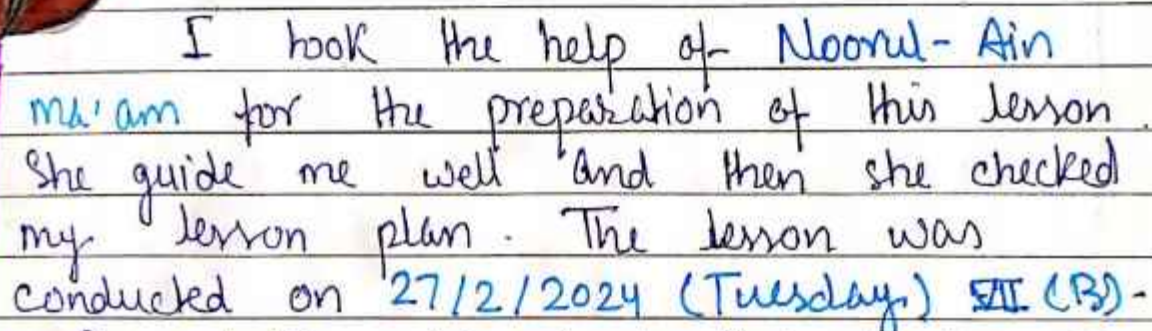 I took the help of Noorul-Ain
ma'am for the preparation of this lesson.
She guide me well and then she checked
my lesson plan. The lesson was
conducted on 27/2/2024 (Tuesday) (B)-